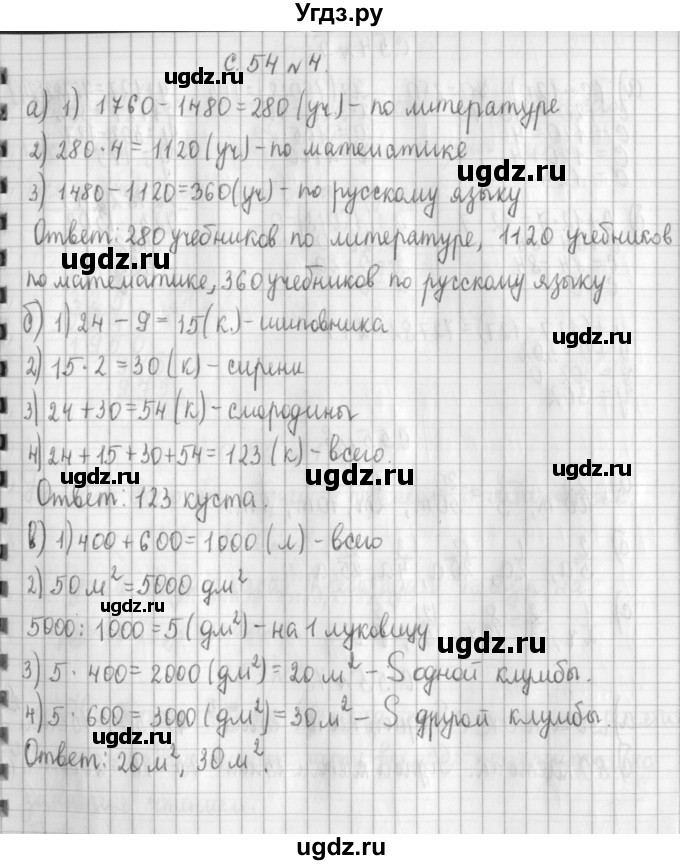 Угдз.ру
С. 54 № 4.
ugdz.ru
а) 1) 1760 - 1480 = 280 (уч) - по литературе
2) 280 · 4 = 1120 (уч) - по математике
ugdz.ru
3) 1480 - 1120 = 360 (уч) - по русскому языку
Ответ: 280 учебников по литературе, 1120 учебников
ugdz.ru
по математике, 360 учебников по русскому языку
б) 1) 24 - 9 = 15 (к.) - шиповника
ugdz.ru
2) 15 · 2 = 30 (к) - сирени
3) 24 + 30 = 54 (к) - смородины
4) 24 + 15 + 30 + 54 = 123 (к) - всего.
ugdz.ru ugdz.ru ugdz.ru
Ответ: 123 куста.
в) 1) 400 + 600 = 1000 (л) - всего
2) 50 м² = 5000 дм²
ugdz.ru
5000 : 1000 = 5 (дм²) - на 1 луковицу
ugdz.ru
3) 5 · 400 = 2000 (дм²) = 20 м² - S одной клумбы.
4) 5 · 600 = 3000 (дм²) = 30 м² - S другой клумбы.
ugdz.ru
Ответ: 20 м², 30 м².
ugdz.ru